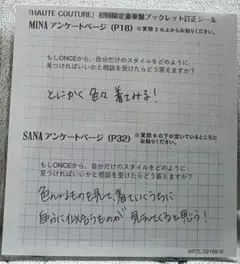 「HAUTE COUTURE」初回限定豪華盤ブックレット訂正シール
MINA アンケートページ (P18) ※質問2の上からお貼りください。
もしONCEから、自分だけのスタイルをどのように
見つければいいかと相談を受けたらどう答えますか?
とにかく色々着てみる!
SANA アンケートページ (P32) ※質問6の下の空いているところに
お貼りください。
もしONCEから、自分だけのスタイルをどのように
見つければいいかと相談を受けたらどう答えますか?
色んなものを見て、着ていくうちに
自分に似合うものが見えてくると思う!
WPZL-32188/9